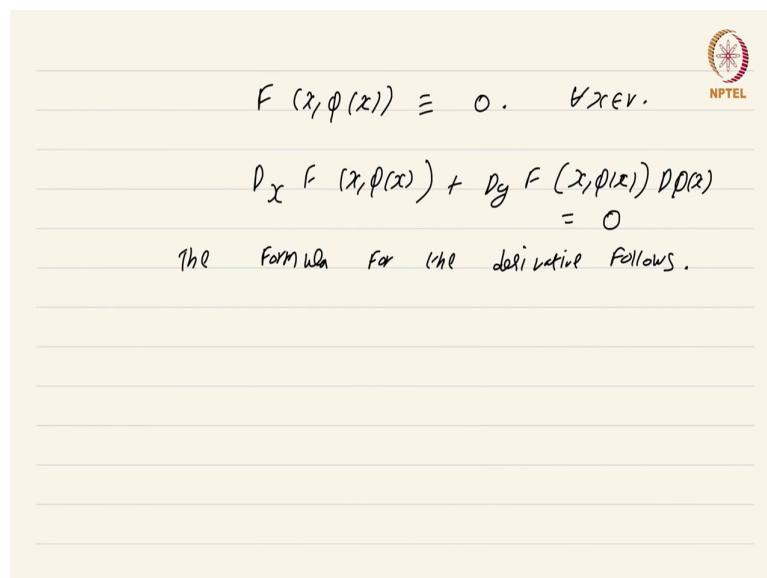 NPTEL
F (x, φ(x)) ≡ 0. ∀x∈V.
D_x F (x, φ(x)) + D_y F (x, φ(x)) Dφ(x)
= 0
The formula for the derivative follows.